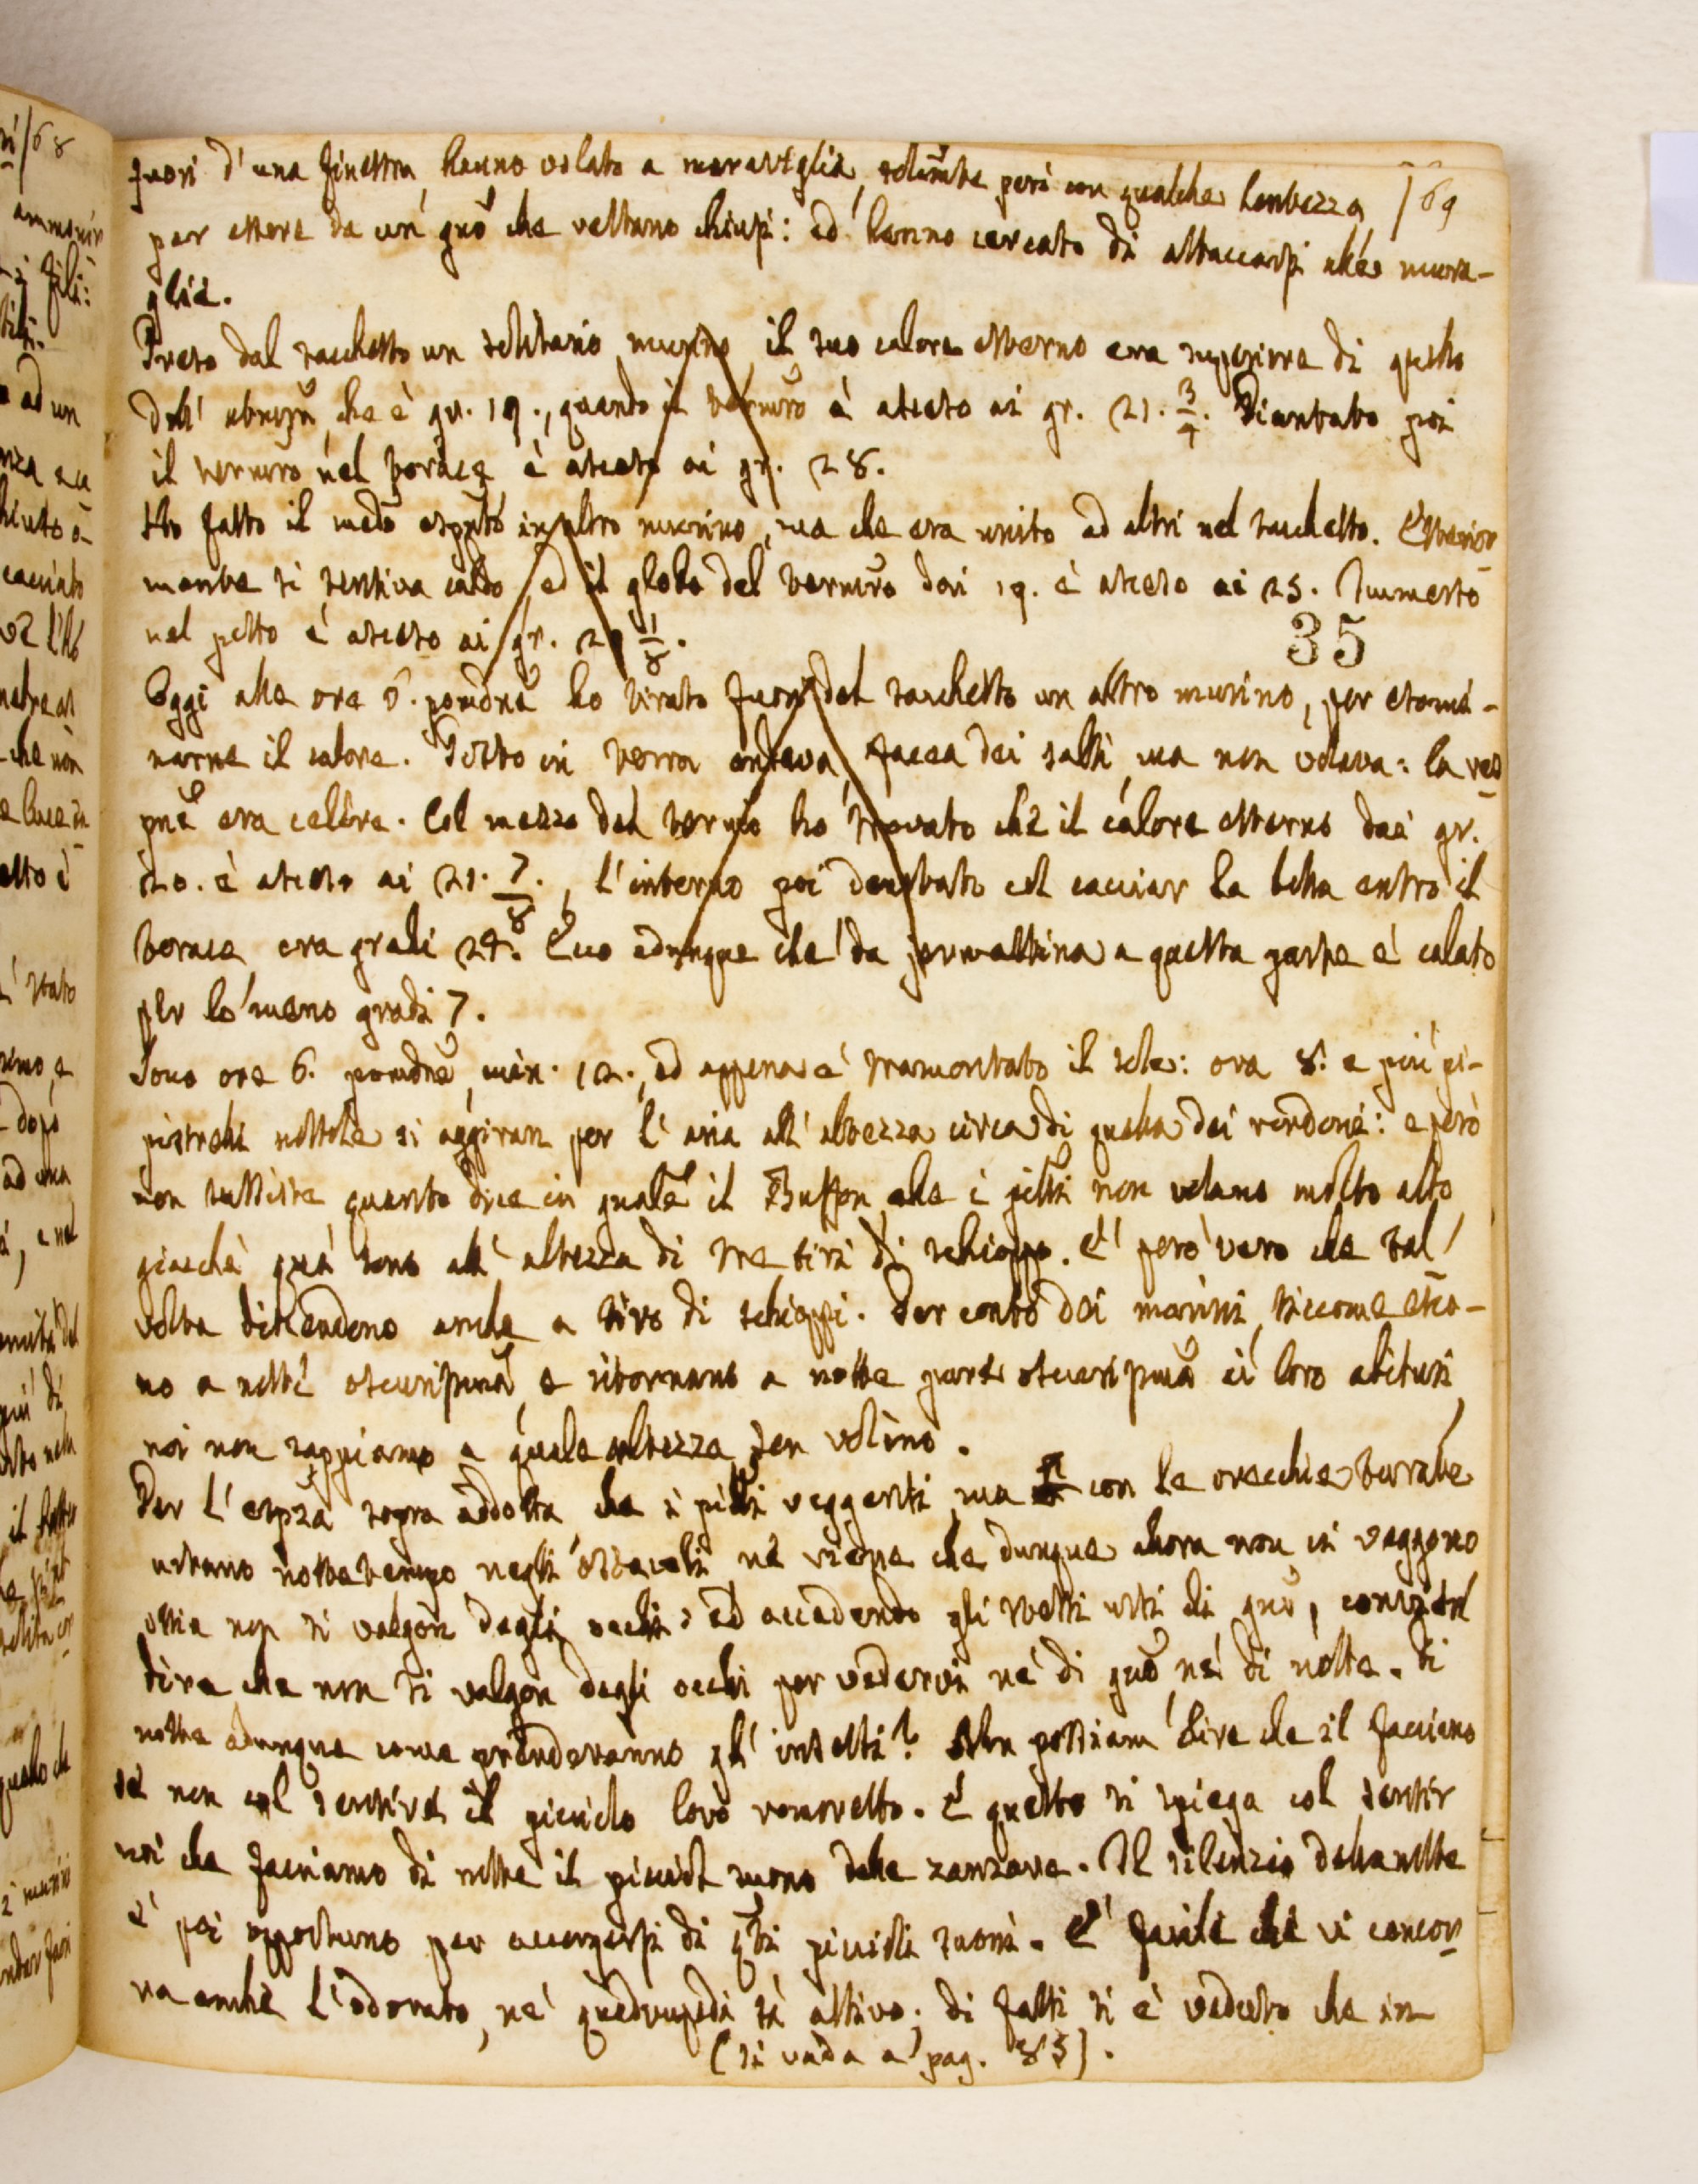 fuori d'una finestra hanno volato a maraviglia, solamte però con qualche lentezza, /69
per essere da un gno che restano chiusi: ed hanno cercato di attaccarsi alle mura-
glie.
Preso dal sacchetto un solitario murino, il suo calore esterno era superiore di quello
dell' , che è gr. 19., quando il termro è asceso ai gr. 21. 3/4. Piantato poi
il termro nel torace è asceso ai gr. 28.
Ho fatto il medo in altro murino, ma che era unito ad altri nel sacchetto. Esterior
mente si sentiva caldo, ed il globo del termro dai 19. è asceso ai 25. Immerso
nel petto è asceso ai gr. 29 1/8.
35
Oggi alle ore 5. pomdne ho tirato fuori del sacchetto un altro murino, per esami-
narne il calore. Posto in terra andava, facea dei salti, ma non volava: la res
pne era celere. Col mezzo del termro ho trovato che il calore esterno dai gr.
20. è asceso ai 21. 7/8., l'interno poi col cacciar la bolla entro il
torace era gradi 24. Ecco adunque che da jermattina a questa parte è calato
per lo meno gradi 7.
Sono ore 6. pomdne, min. 12., ed appena è tramontato il sole: ora 8. e più pi-
pistrelli nottole si aggiran per l'aria all'altezza circa di quella dei rondoni: e però
non sussiste quanto dice in gnale il Buffon, che i pilli non volano molto alto,
giacchè quà sono all'altezza di tre tiri di schioppo. E' però vero che tal'
volta discendono anche a tiro di schioppi. Per conto dei murini, siccome esco-
no a notte oscurissma, e ritornano a notte parte oscurissma ai loro abituri,
noi non sappiamo a quale altezza sen volino.
Per l'espza sopra addotta che i pilli veggenti, ma con le orecchie turate
urtano nottetempo negli ostacoli, ne viene che dunque allora non ci veggono
ossia non si valgon degli occhi: ed accadendo gli stessi urti di gno, convien
dire che non si valgon degli occhi per vedervi nè di gno nè di notte. Di
notte adunque come prenderanno gl'insetti? Non possiam dire che il facciano
se non col sentire il picciolo loro romoretto. E questo si spiega col sentir
noi che facciamo di notte il picciol suono delle zanzare. Il silenzio della notte
è poi opportuno per accorgersi di qsti piccioli suoni. E' facile che vi concor
ra anche l'odorato, ne' quadrupedi sì attivo; di fatti si è veduto che in
(si vada a pag. 85).